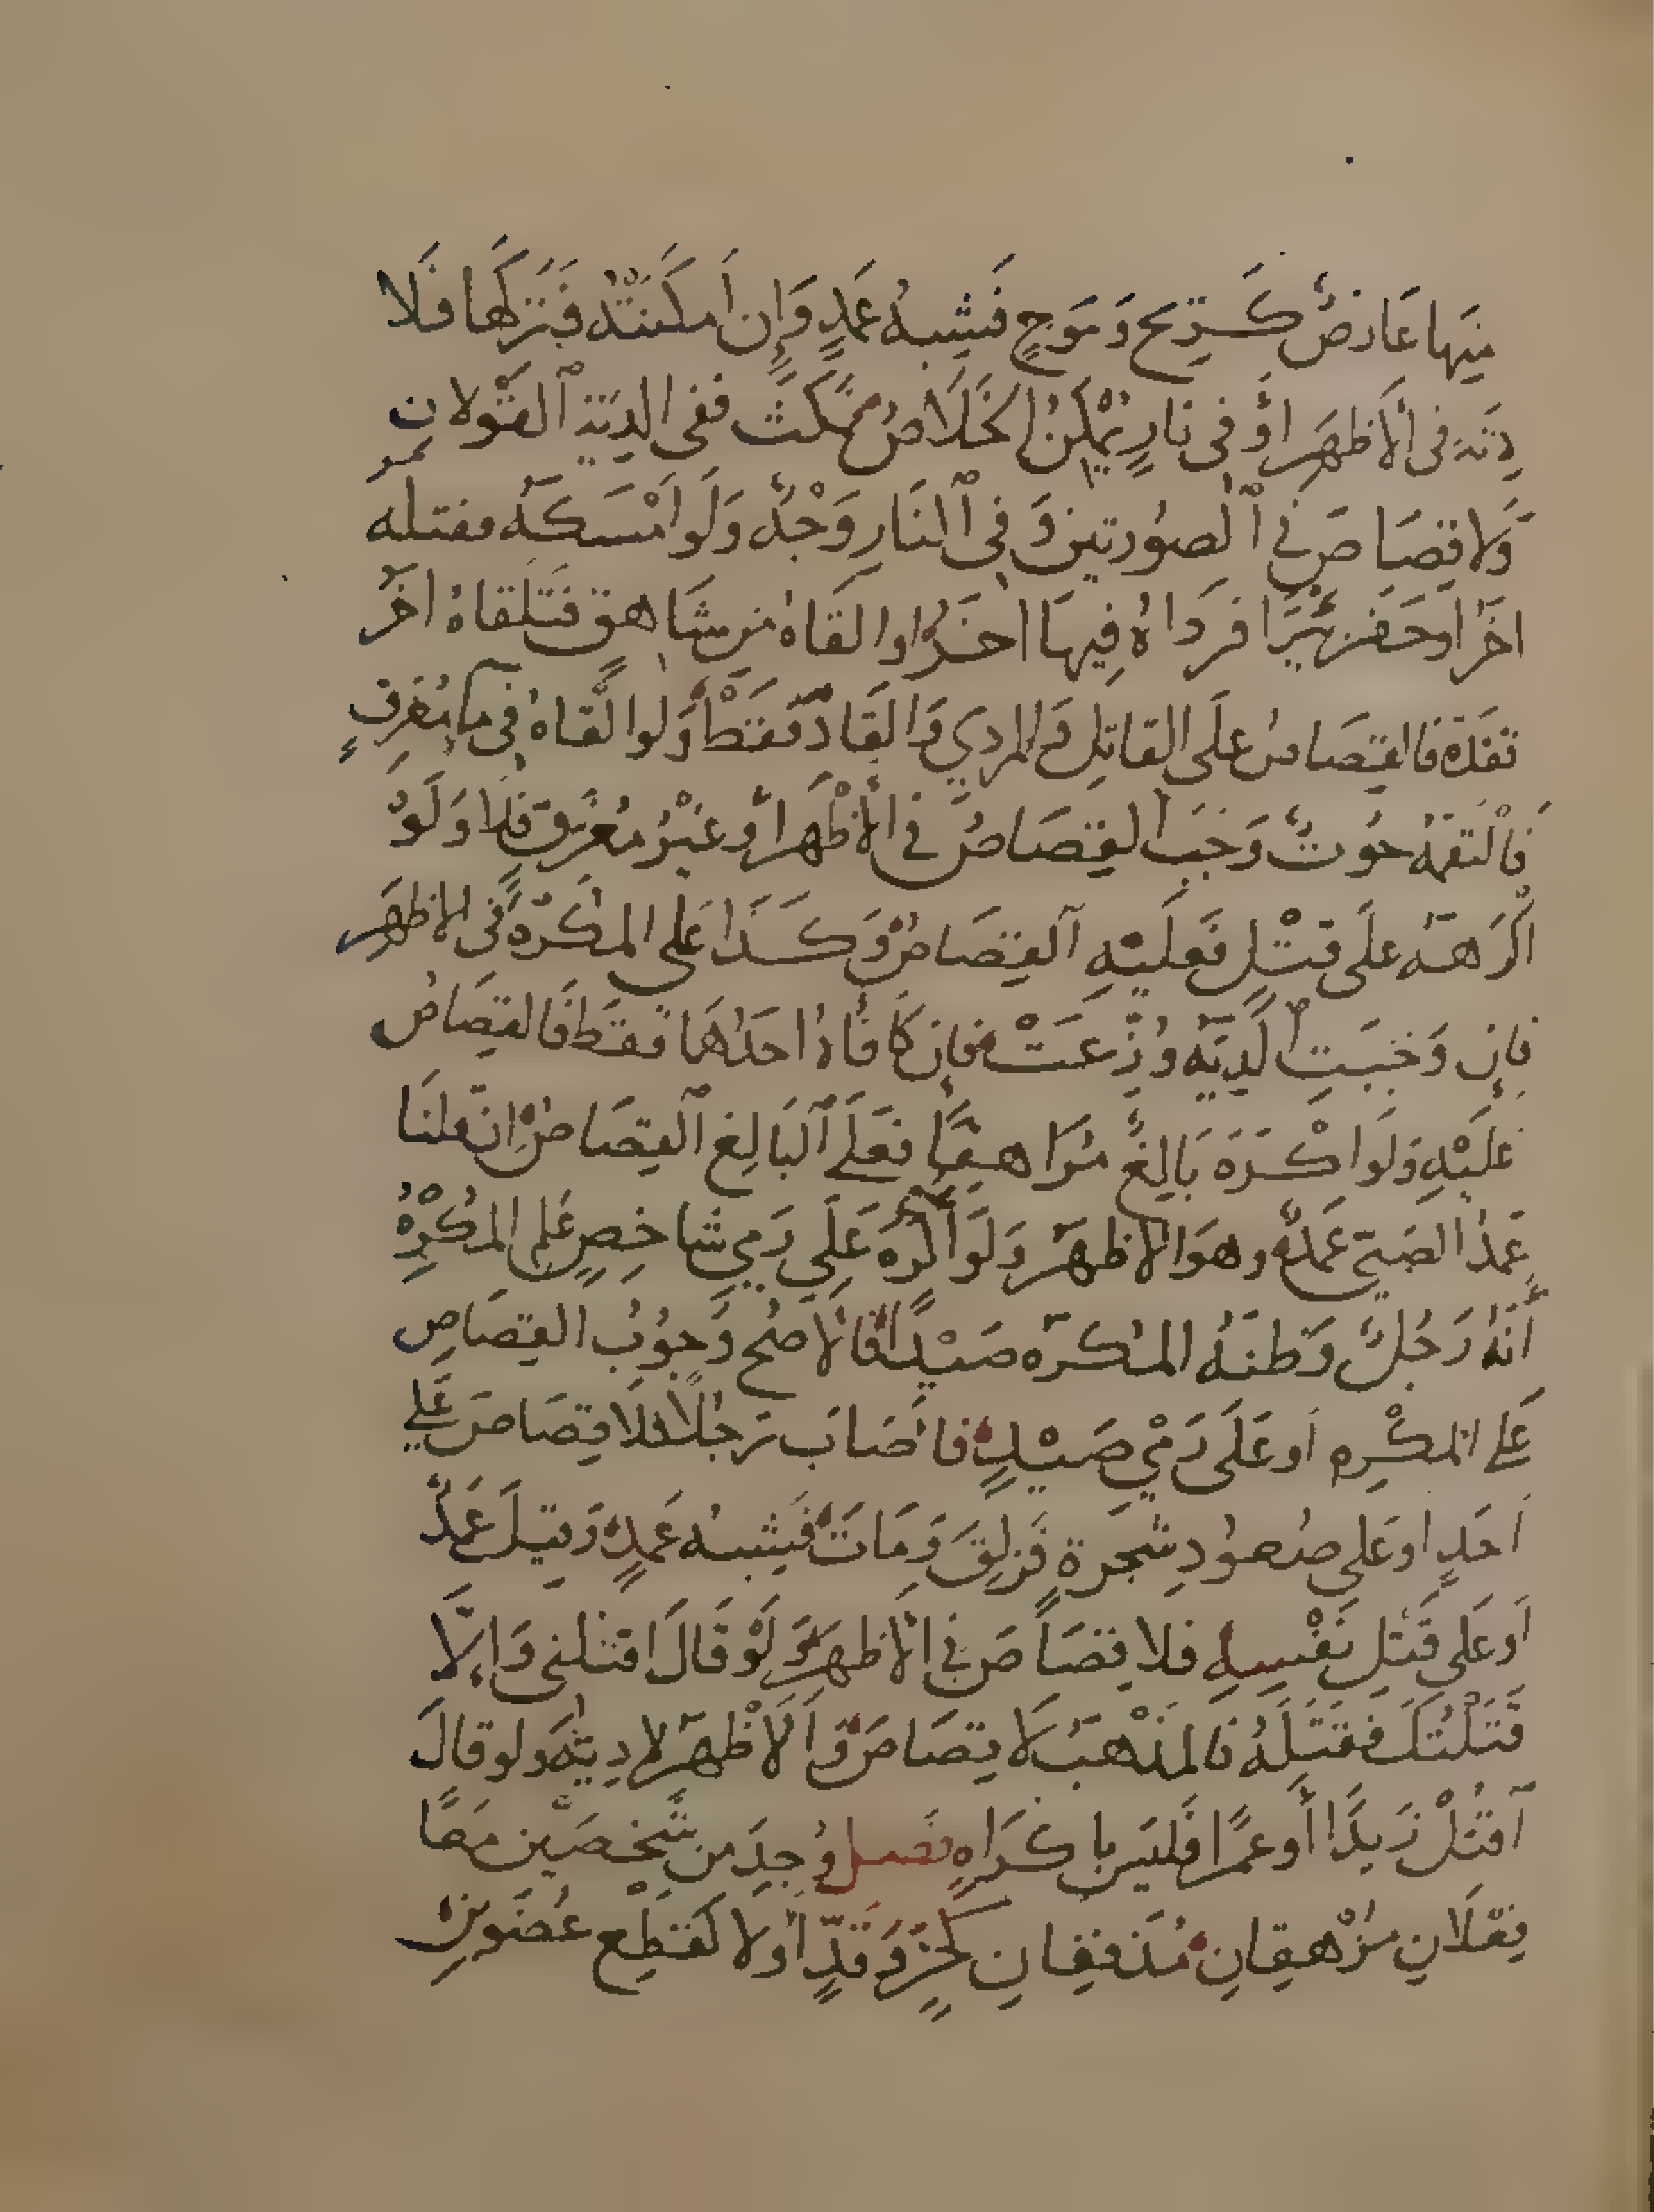 مِنْهَا عَارِضٌ كَرِيحٍ وَمَوْجٍ فَشِبْهُ عَمْدٍ وَإِنْ أَمْكَنَتْهُ فَتَرَكَهَا فَلَا
دِيَةَ فِي الْأَظْهَرِ أَوْ فِي نَارٍ يُمْكِنُ الْخَلَاصُ فَمَكَثَ فَفِي الدِّيَةِ الْقَوْلَانِ
وَلَا قِصَاصَ فِي الصُّورَتَيْنِ وَفِي النَّارِ وَجْهٌ وَلَوْ أَمْسَكَهُ فَقَتَلَهُ
آخَرُ أَوْ حَفَرَ بِئْرًا فَرَدَاهُ فِيهَا آخَرُ أَوْ أَلْقَاهُ مِنْ شَاهِقٍ فَتَلَقَّاهُ آخَرُ
فَقَدَّهُ فَالْقِصَاصُ عَلَى الْقَاتِلِ وَالْمُرْدِي وَالْقَادِّ فَقَطْ وَلَوْ أَلْقَاهُ فِي مَاءٍ مُغْرِقٍ
فَالْتَقَمَهُ حُوتٌ وَجَبَ الْقِصَاصُ فِي الْأَظْهَرِ أَوْ غَيْرِ مُغْرِقٍ فَلَا وَلَوْ
أَكْرَهَهُ عَلَى قَتْلٍ فَعَلَيْهِ الْقِصَاصُ وَكَذَا عَلَى الْمُكْرَهِ فِي الْأَظْهَرِ
فَإِنْ وَجَبَتِ الدِّيَةُ وُزِّعَتْ فَإِنْ كَافَأَهُ أَحَدُهُمَا فَقَطْ فَالْقِصَاصُ
عَلَيْهِ وَلَوْ أَكْرَهَ بَالِغٌ مُرَاهِقًا فَعَلَى الْبَالِغِ الْقِصَاصُ إِنْ قُلْنَا
عَمْدُ الصَّبِيِّ عَمْدٌ وَهُوَ الْأَظْهَرُ وَلَوْ أُكْرِهَ عَلَى رَمْيِ شَاخِصٍ عَلِمَ الْمُكْرِهُ
أَنَّهُ رَجُلٌ وَظَنَّهُ الْمُكْرَهُ صَيْدًا فَالْأَصَحُّ وُجُوبُ الْقِصَاصِ
عَلَى الْمُكْرِهِ أَوْ عَلَى رَمْيِ صَيْدٍ فَأَصَابَ رَجُلًا فَلَا قِصَاصَ عَلَى
أَحَدٍ أَوْ عَلَى صُعُودِ شَجَرَةٍ فَزَلِقَ وَمَاتَ فَشِبْهُ عَمْدٍ وَقِيلَ عَمْدٌ
أَوْ عَلَى قَتْلِ نَفْسِهِ فَلَا قِصَاصَ فِي الْأَظْهَرِ وَلَوْ قَالَ اقْتُلْنِي وَإِلَّا
قَتَلْتُكَ فَقَتَلَهُ فَالْمَذْهَبُ لَا قِصَاصَ وَالْأَظْهَرُ لَا دِيَةَ وَلَوْ قَالَ
اقْتُلْ زَيْدًا أَوْ عَمْرًا فَلَيْسَ بِإِكْرَاهٍ فَصْلٌ وُجِدَ مِنْ شَخْصَيْنِ مَعًا
فِعْلَانِ مُزْهِقَانِ مُذَفِّفَانِ كَحَزٍّ وَقَدٍّ أَوْ لَا كَقَطْعِ عُضْوَيْنِ